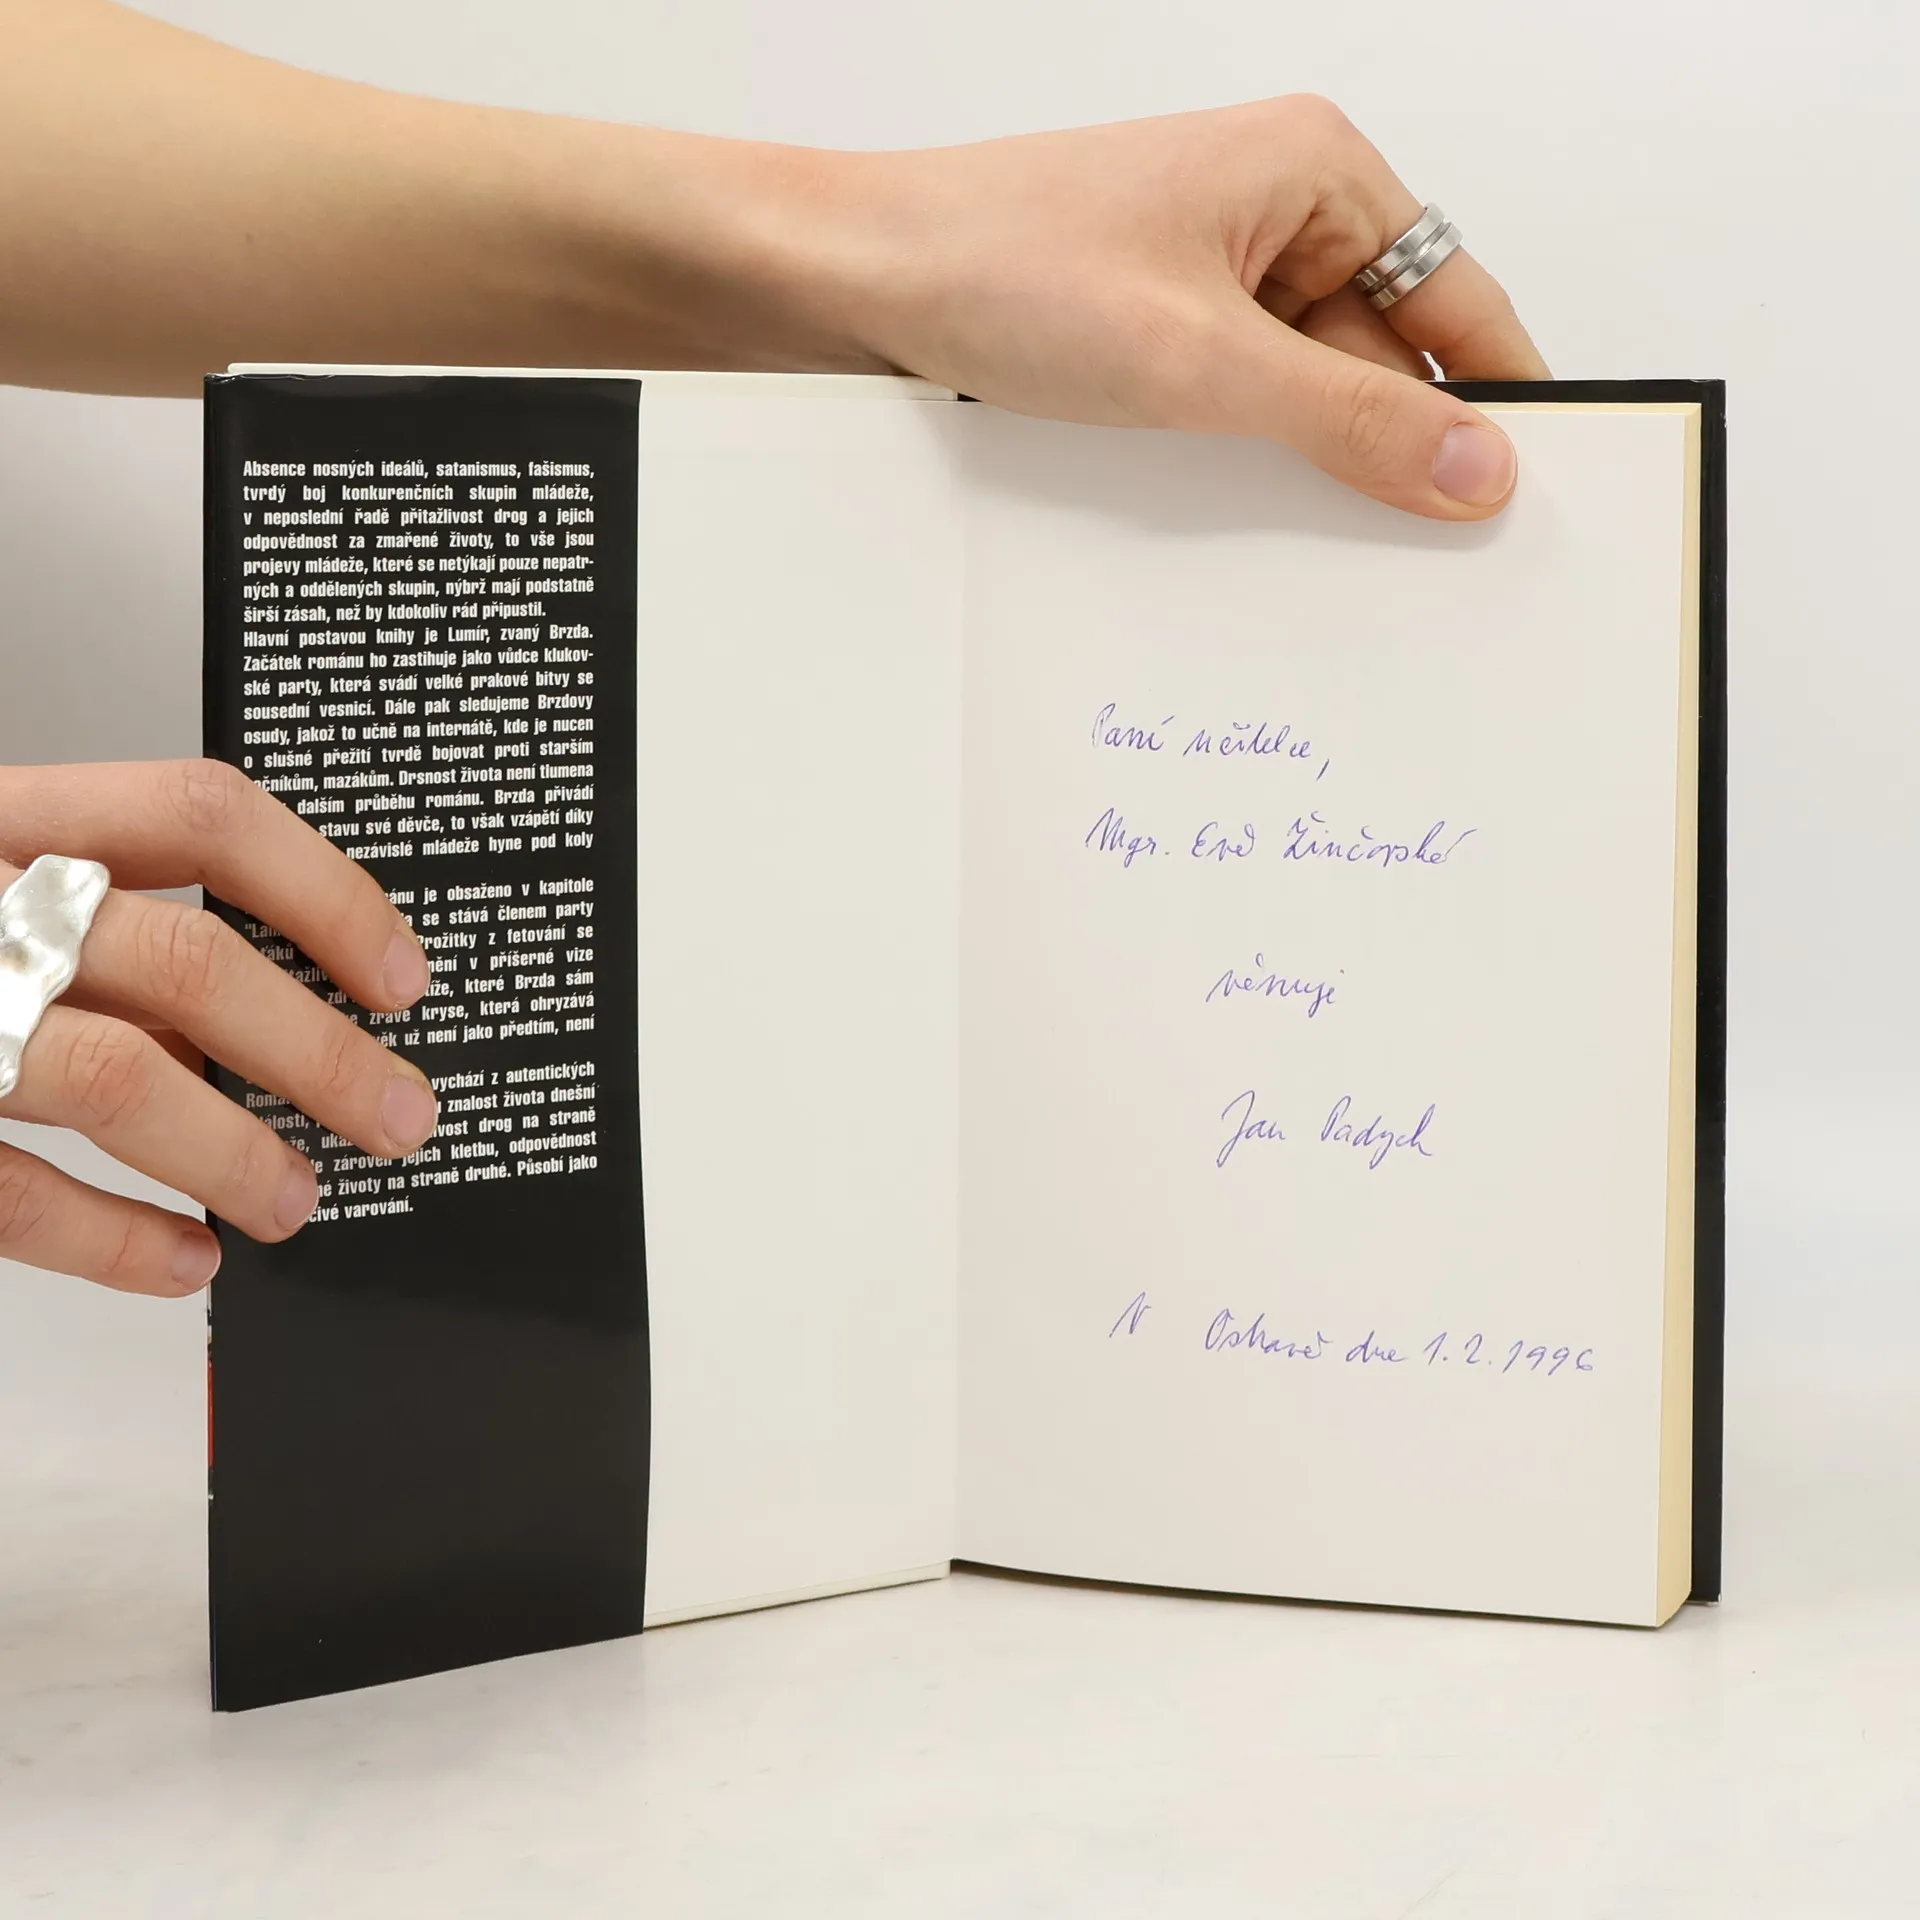 Absence nosných ideálů, satanismus, fašismus,
tvrdý boj konkurenčních skupin mládeže,
v neposlední řadě přitažlivost drog a jejich
odpovědnost za zmařené životy, to vše jsou
projevy mládeže, které se netýkají pouze nepatr-
ných a oddělených skupin, nýbrž mají podstatně
širší zásah, než by kdokoliv rád připustil.
Hlavní postavou knihy je Lumír, zvaný Brzda.
Začátek románu ho zastihuje jako vůdce klukov-
ské party, která svádí velké prakové bitvy se
sousední vesnicí. Dále pak sledujeme Brzdovy
osudy, jakož to učně na internátě, kde je nucen
o slušné přežití tvrdě bojovat proti starším
očníkům, mazákům. Drsnost života není tlumena
dalším průběhu románu. Brzda přivádí
stavu své děvče, to však vzápětí díky
nezávislé mládeže hyne pod koly
ánu je obsaženo v kapitole
se stává členem party
Prožitky z fetování se
mění v příšerné vize
tíže, které Brzda sám
zravé kryse, která ohryzává
věk už není jako předtím, není
vychází z autentických
znalost života dnešní
ivost drog na straně
zároveň jejich kletbu, odpovědnost
né životy na straně druhé. Působí jako
čivé varování.
Paní učitelce,
Mgr. Evě Žinčovské
věnuje
Jan Padych
V Ostravě dne 1.2.1996